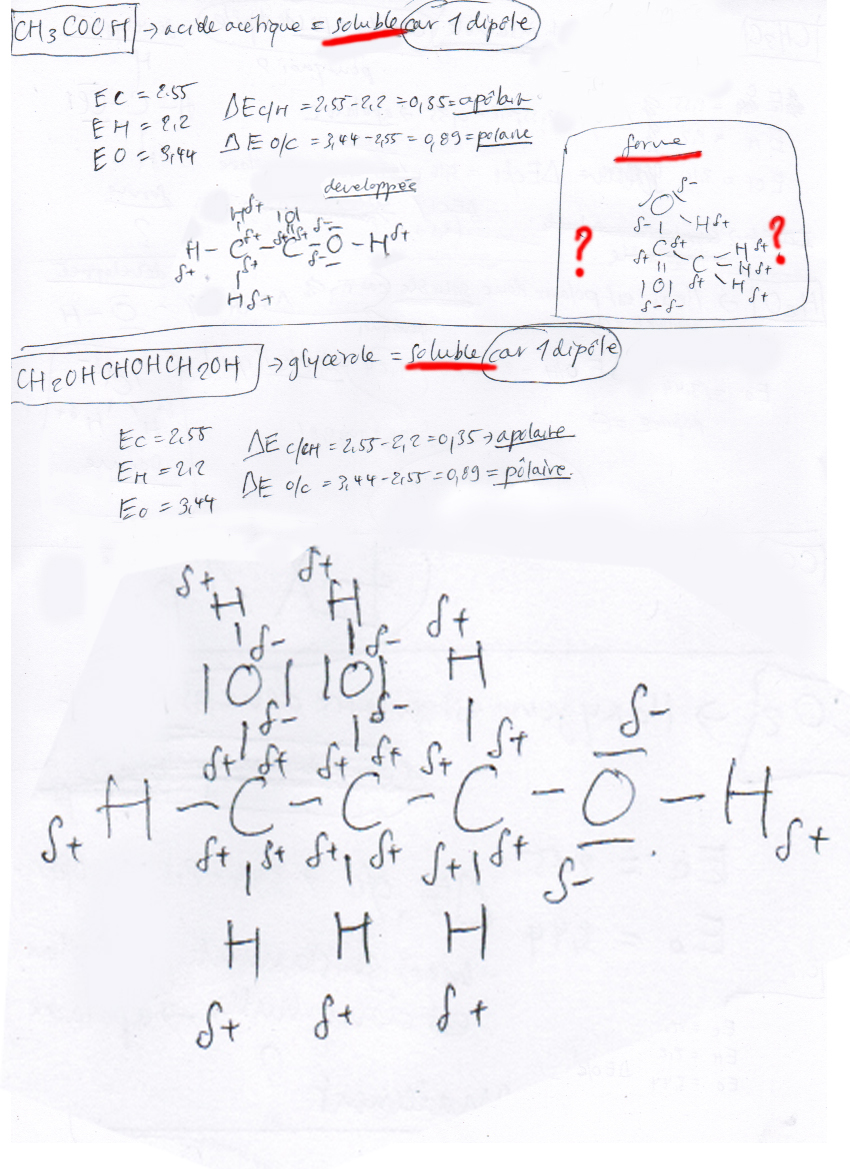 CH3COOH → acide acétique = soluble car 1 dipôle
EC = 2.55
EH = 2,2
EO = 3,44
ΔEC/H = 2,55-2,2 = 0,35 = apôlaire
ΔE O/C = 3,44-2,55 = 0,89 = polaire
developpée
H δ+ |O|
H - C δ+ - C δ+ - O - H δ+
δ+ δ+ δ-
H δ+
forme
? ?
O δ-
δ- H δ+
δ+ C δ+ C H δ+
H δ+
|O| δ+ H δ+
δ- δ-
CH2OHCHOHCH2OH → glycérole = soluble car 1 dipôle
EC = 2,55
EH = 2,2
EO = 3,44
ΔE C/H = 2,55-2,2 = 0,35 → apolaire
ΔE O/C = 3,44-2,55 = 0,89 = pôlaire.
δ+ δ+
H H δ+
δ- δ- H
|O| |O| δ-
δ- δ-
δ+ δ+ δ+ δ+ δ+ δ+
H - C - C - C - O - H
δ+ δ+ δ+ δ+ δ+ δ+ δ+ δ- δ+
H H H
δ+ δ+ δ+